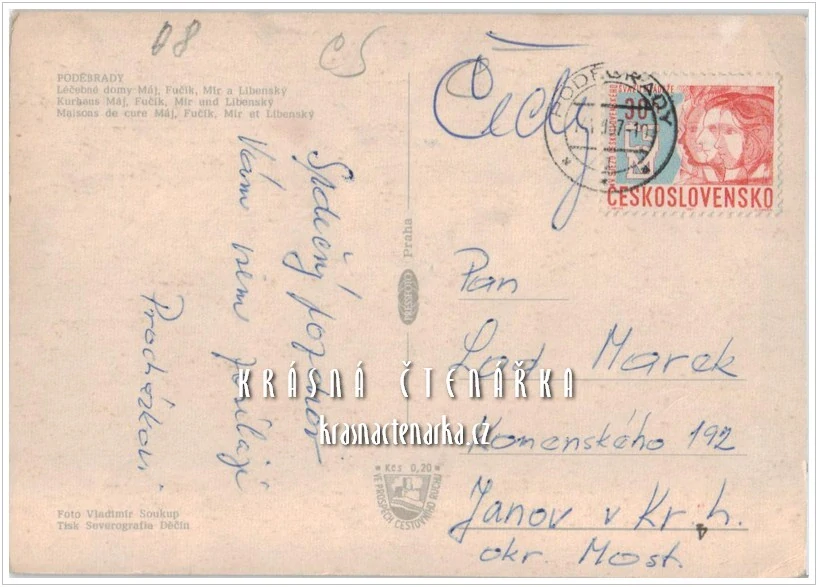 08
CS
PODĚBRADY
Léčebné domy Máj, Fučík, Mír a Libenský
Kurhaus Máj, Fučík, Mír und Libenský
Maisons de cure Máj, Fučík, Mír et Libenský
Srdečný pozdrav
Vám všem posílají
Procházkovi
Foto Vladimír Soukup
Tisk Severografia Děčín
Praha
PRESSFOTO
Kčs 0,20
VE PROSPĚCH CESTOVNÍHO RUCHU
Čechy
PODĚBRADY
30
ČESKOSLOVENSKO
Pan
Lad. Marek
Komenského 192
Janov v Kr. h.
okr. Most.
KRÁSNÁ ČTENÁŘKA
krasnactenarka.cz